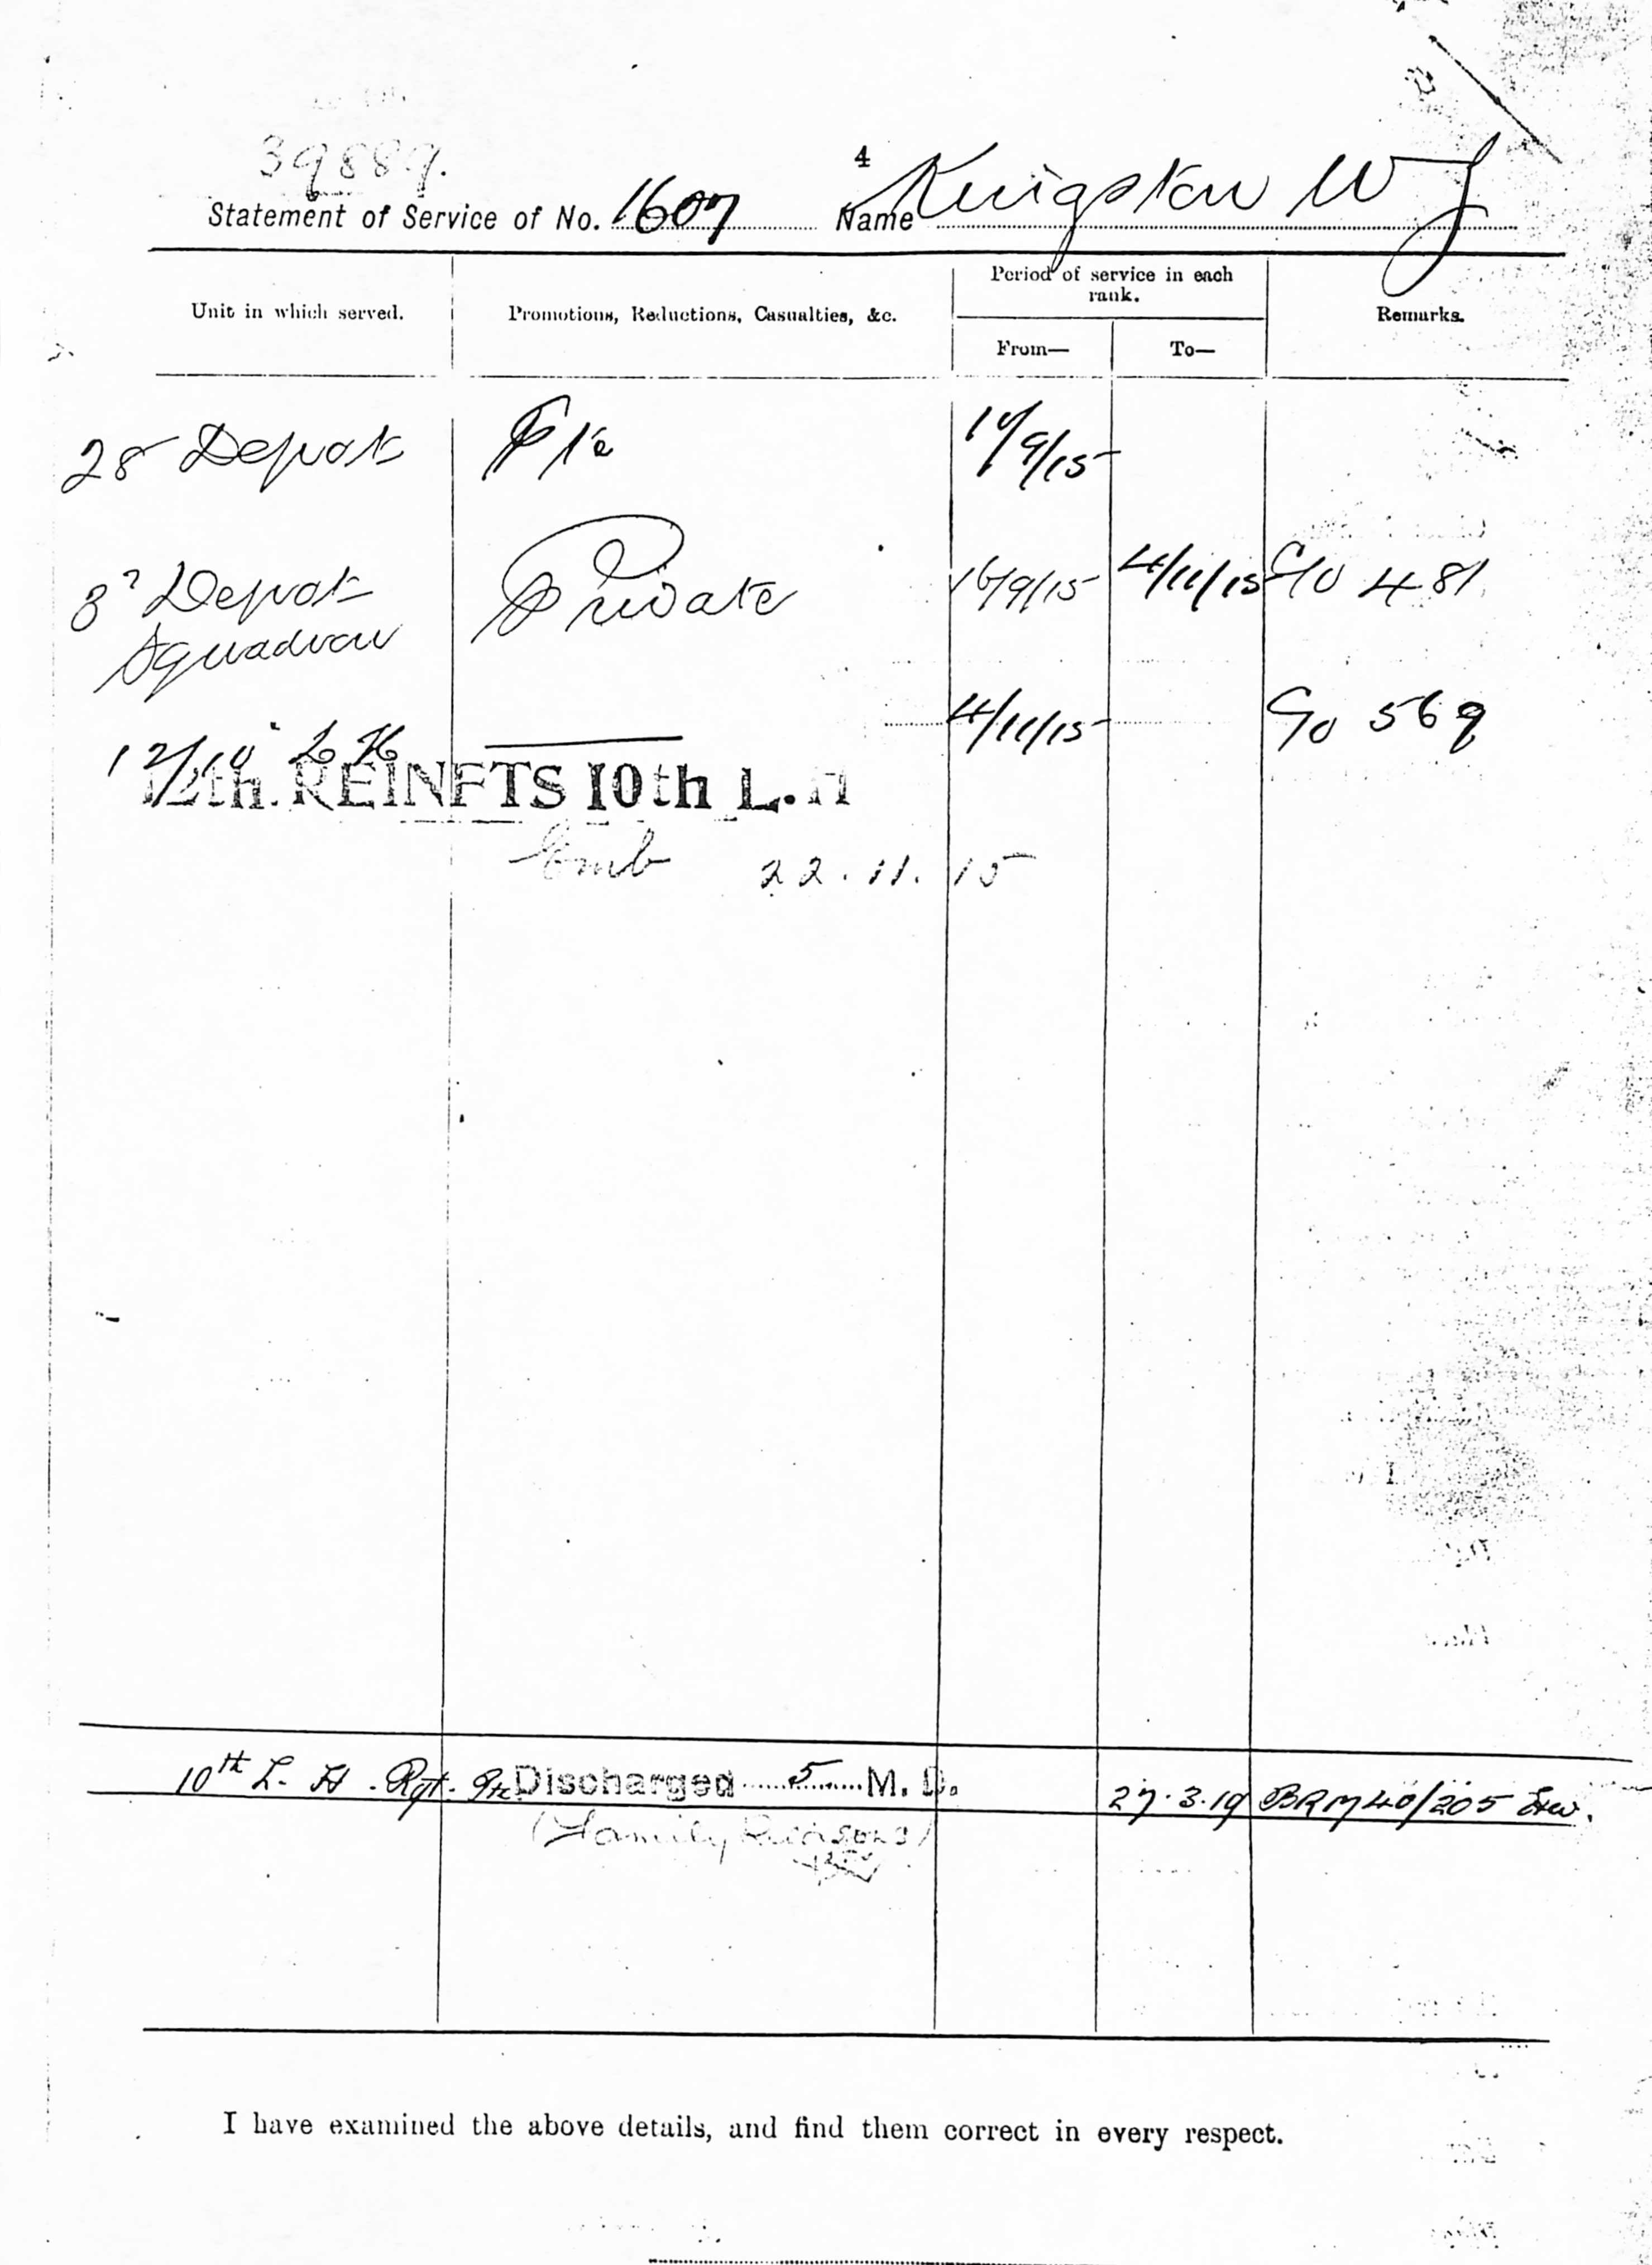 39889.
4
Statement of Service of No. 1607 Name Kingston W J
Unit in which served. Promotions, Reductions, Casualties, &c. Period of service in each rank. Remarks.
From— To—
28 Depot Pte /9/15
8 Depot Private 16/9/15 4/11/15 GO 481
Squadron
12/10 L H 4/11/15 GO 569
12th. REINFTS 10th L. H
Emb 22.11.15
10th L. H. Rgt. Pte Discharged 5 M. D. 27.3.19 BRM40/205
(Family Reasons)
I have examined the above details, and find them correct in every respect.